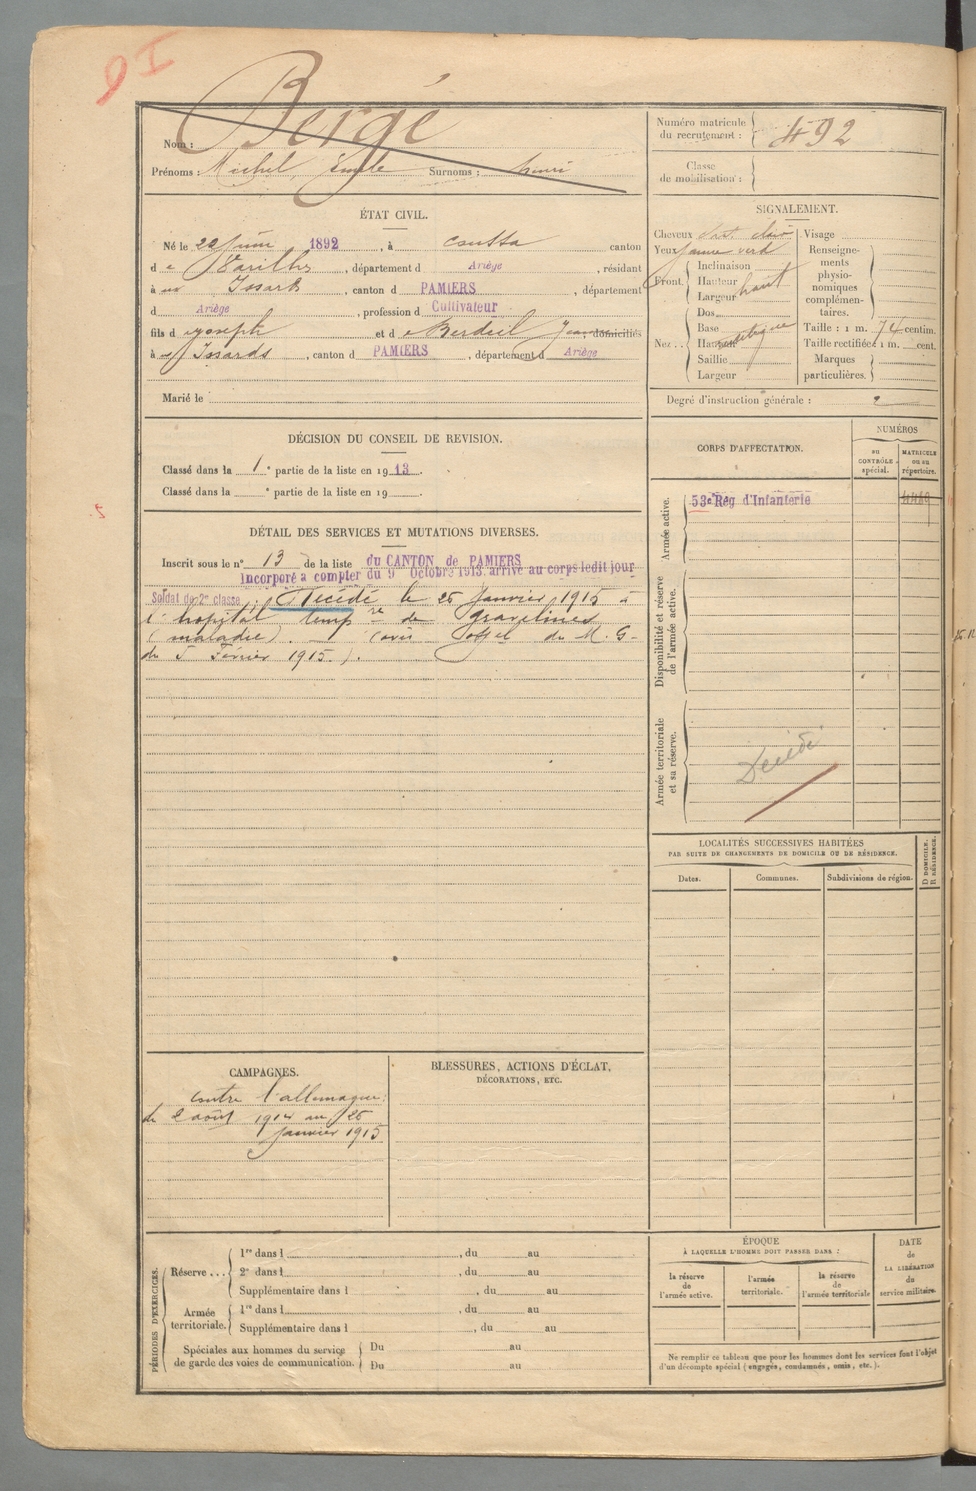 Bergé
Nom :
Prénoms : Michel, Emile Surnoms : henri
Numéro matricule du recrutement : 492
Classe de mobilisation :
ÉTAT CIVIL.
Né le 22 Juin 1892, à Coussa canton
de Varilhes, département d Ariège, résidant
à Issards, canton d PAMIERS, département
d Ariège, profession d Cultivateur
fils d Joseph et de Berdeil Jean domiciliés
à Issards, canton d PAMIERS, département d Ariège
Marié le
SIGNALEMENT.
Cheveux chat. clair Visage
Yeux jaune verd
Front. Inclinaison
Hauteur
Largeur haut
Nez.. Dos
Base
Hauteur
Saillie
Largeur
Renseignements physionomiques complémentaires.
Taille : 1 m. 74 centim.
Taille rectifiée : 1 m. cent.
Marques particulières.
Degré d'instruction générale : 2
DÉCISION DU CONSEIL DE REVISION.
Classé dans la 1e partie de la liste en 1913.
Classé dans la e partie de la liste en 19
DÉTAIL DES SERVICES ET MUTATIONS DIVERSES.
Inscrit sous le n° 13 de la liste du CANTON de PAMIERS
Incorporé à compter du 9 Octobre 1913. arrivé au corps ledit jour
Soldat de 2e classe. Décédé le 25 Janvier 1915 à
l'hopital tempre de Gravelines
(maladie). (avis offel du M. G.
du 5 Février 1915.).
CORPS D'AFFECTATION.
NUMÉROS
au CONTRÔLE spécial.
MATRICULE ou au répertoire.
Armée active.
53e Rég d'Infanterie
Disponibilité et réserve de l'armée active.
Armée territoriale et sa réserve.
Décédé
LOCALITÉS SUCCESSIVES HABITÉES
PAR SUITE DE CHANGEMENTS DE DOMICILE OU DE RÉSIDENCE.
Dates.
Communes.
Subdivisions de région.
D DOMICILE.
R RÉSIDENCE.
CAMPAGNES.
Contre l'allemagne
du 2 août 1914 au 25
Janvier 1915
BLESSURES, ACTIONS D'ÉCLAT,
DÉCORATIONS, ETC.
PÉRIODES D'EXERCICES.
Réserve... 1re dans l , du au
2e dans l , du au
Supplémentaire dans l , du au
Armée territoriale. 1re dans l , du au
Supplémentaire dans l , du au
Spéciales aux hommes du service de garde des voies de communication. Du au
Du au
ÉPOQUE
À LAQUELLE L'HOMME DOIT PASSER DANS :
la réserve de l'armée active.
l'armée territoriale.
la réserve de l'armée territoriale
DATE de LA LIBÉRATION du service militaire.
Ne remplir ce tableau que pour les hommes dont les services font l'objet
d'un décompte spécial (engagés, condamnés, omis, etc.).